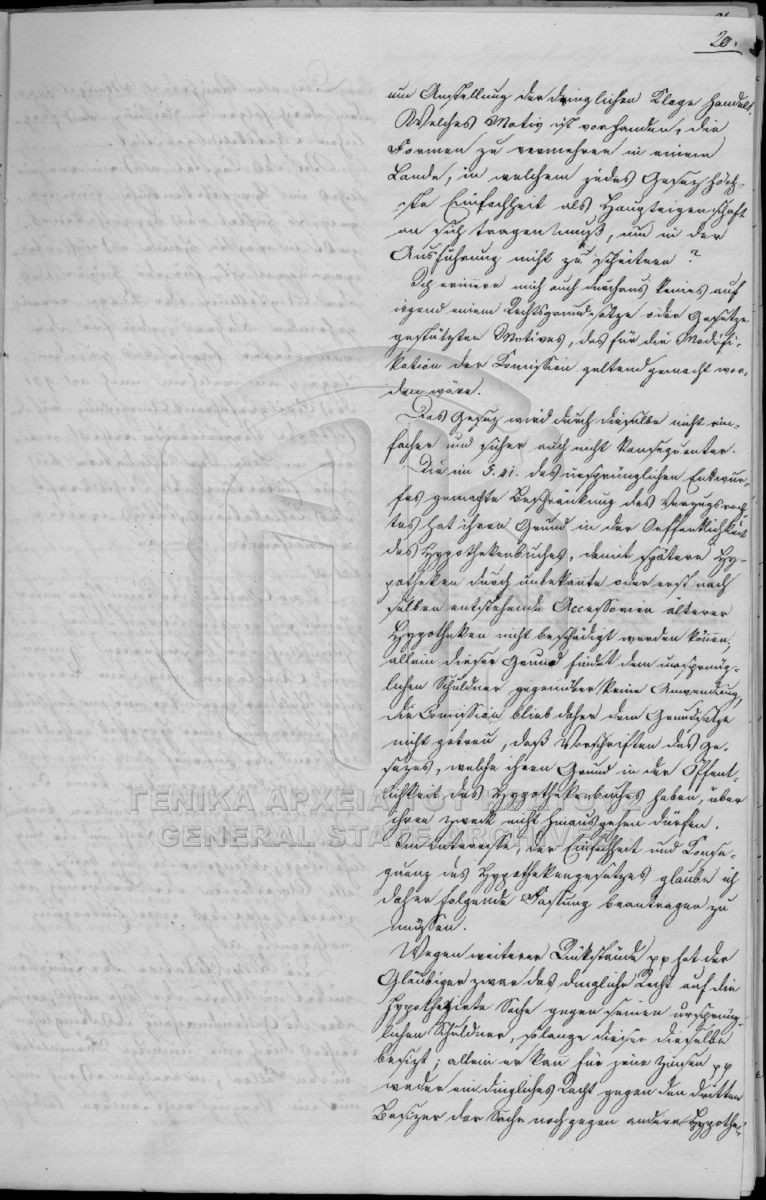 20.
um Anstellung der dinglichen Klage handelt.
Welches Motiv ist vorhanden, die
Formen zu vermehren in einem
Lande, in welchem jedes Gesez höch-
ste Einfachheit als Haupteigenschaft
an sich tragen muß, um in der
Ausführung nicht zu scheitern?
Ich erinnere mich auch durchaus keines auf
irgend einem Rechtsgrundsatze oder Gesetze
gestützten Motives, das für die Modifi-
kation der Comission geltend gemacht wor-
den wäre.
Das Gesez wird durch dieselbe nicht ein-
facher und sicher auch nicht konsequenter.
Die im §. 21. des ursprünglichen Entwur-
fes gemachte Beschränkung des Vorzugsrech-
tes hat ihren Grund in der Oeffentlichkeit
des Hypothekenbuches, damit spätere Hy-
potheken durch unbekannte oder erst nach
selben entstehende Accessorien älterer
Hypotheken nicht beschädigt werden können,
allein dieser Grund findet dem ursprüng-
lichen Schuldner gegenüber keine Anwendung,
die Comission blieb daher dem Grundsatze
nicht getreu, daß Vorschriften des Ge-
sezes, welche ihren Grund in der Öffent-
lichkeit des Hypothekenbuches haben, über
ihren Zweck nicht hinausgehen dürfen.
Im Interesse der Einfachheit und Conse-
quenz des Hypothekengesetzes glaube ich
daher folgende Fassung beantragen zu
müssen.
Wegen weiterer Rükstände pp hat der
Gläubiger zwar das dingliche Recht auf die
hypothezirte Sache gegen seinen ursprüng-
lichen Schuldner, solange dieser dieselbe
besizt; allein er kan für jene Zinsen pp
weder ein dingliches Recht gegen den dritten
Besizer der Sache noch gegen andere Hypothe-
ΓΕΝΙΚΑ ΑΡΧΕΙΑ ΤΟΥ
GENERAL STATE ARCHIVES